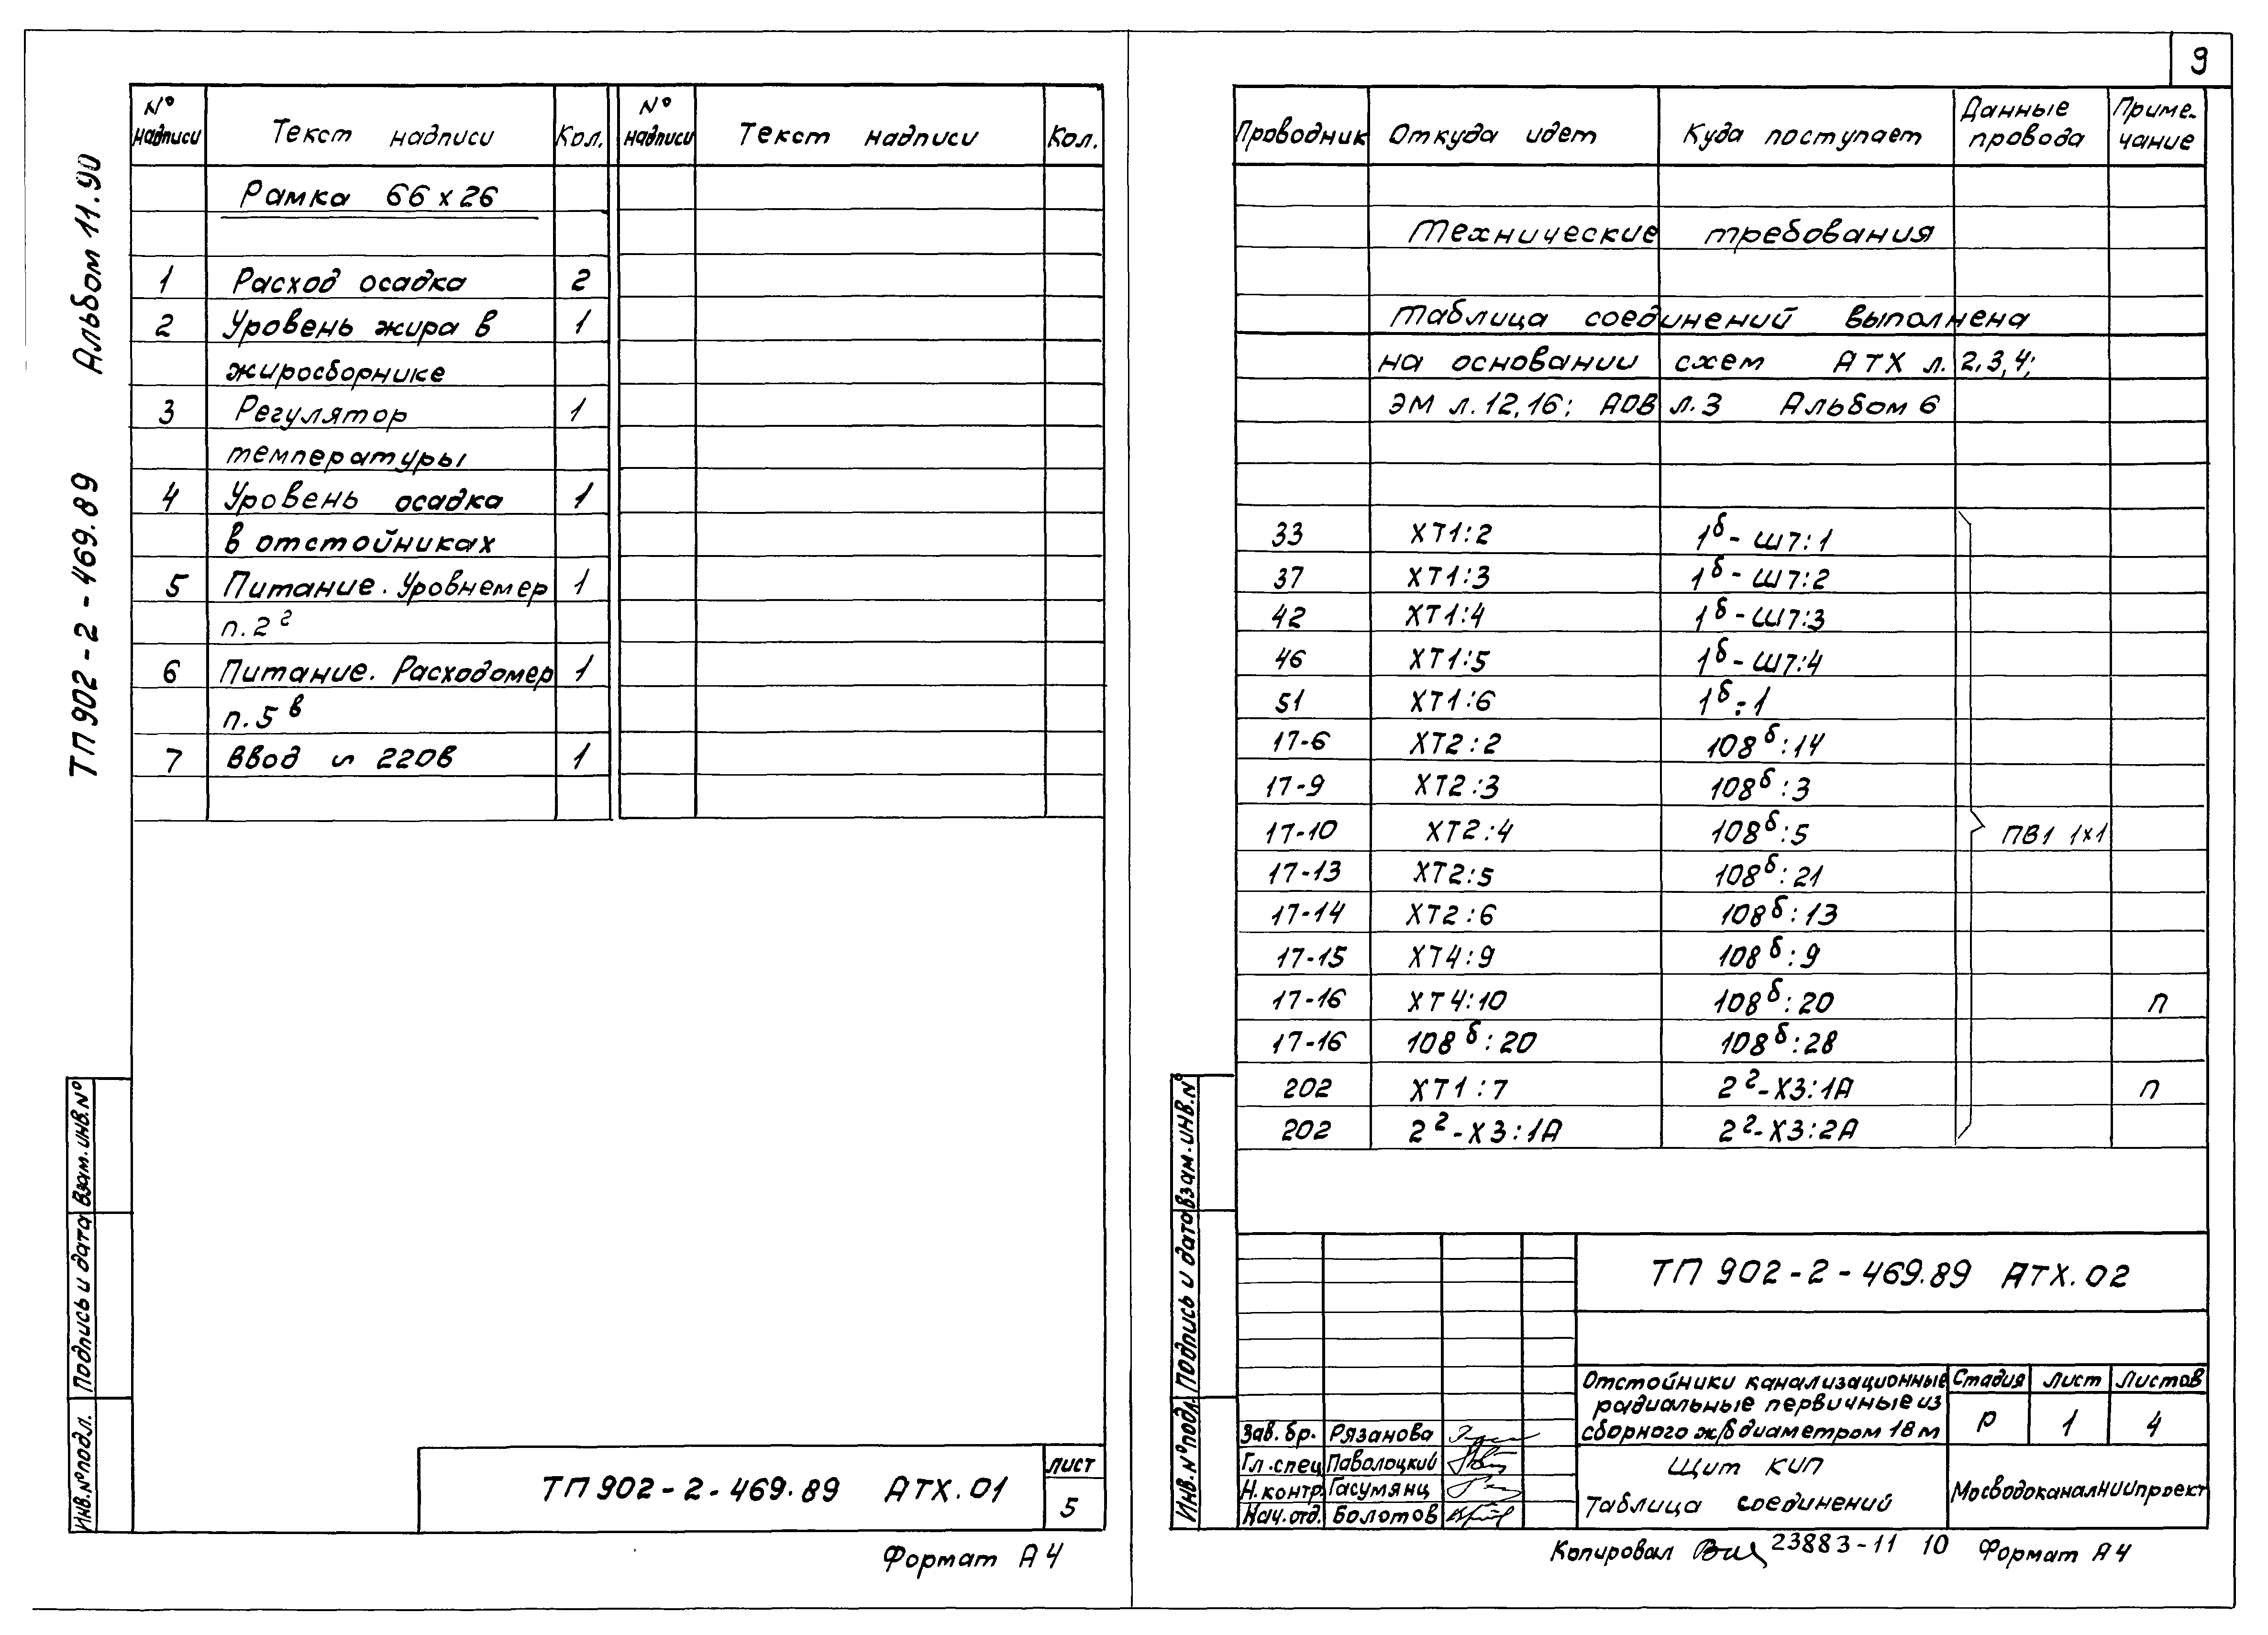 9
Альбом 11.90
ТП 902-2-469.89
№ надписи Текст надписи Кол. № надписи Текст надписи Кол.
Рамка 66х26
1 Расход осадка 2
2 Уровень жира в 1
жиросборнике
3 Регулятор 1
температуры
4 Уровень осадка 1
в отстойниках
5 Питание. Уровнемер 1
п. 2г
6 Питание. Расходомер 1
п. 5в
7 Ввод ~ 220В 1
Взам. инв. №
Подпись и дата
Инв. № подл.
ТП 902-2-469.89 АТХ.01
лист
5
Формат А4
Проводник Откуда идет Куда поступает Данные провода Приме-чание
Технические требования
Таблица соединений выполнена
на основании схем АТХ л. 2,3,4;
ЭМ л. 12,16; АОВ л. 3 Альбом 6
33 ХТ1:2 1б-Ш7:1
37 ХТ1:3 1б-Ш7:2
42 ХТ1:4 1б-Ш7:3
46 ХТ1:5 1б-Ш7:4
51 ХТ1:6 1б:1
17-6 ХТ2:2 108б:14
17-9 ХТ2:3 108б:3
17-10 ХТ2:4 108б:5 ПВ1 1х1
17-13 ХТ2:5 108б:21
17-14 ХТ2:6 108б:13
17-15 ХТ4:9 108б:9
17-16 ХТ4:10 108б:20 п
17-16 108б:20 108б:28
202 ХТ1:7 2г-Х3:1А п
202 2г-Х3:1А 2г-Х3:2А
Взам. инв. №
Подпись и дата
Инв. № подл.
ТП 902-2-469.89 АТХ.02
Отстойники канализационные
радиальные первичные из
сборного ж/б диаметром 18 м
Стадия Лист Листов
Р 1 4
Зав. бр. Рязанова
Гл. спец Паволоцкий
Н. контр. Гасумянц
Нач. отд. Болотов
Щит КИП
Таблица соединений
МосводоканалНИИпроект
Копировал 23883-11 10 Формат А4